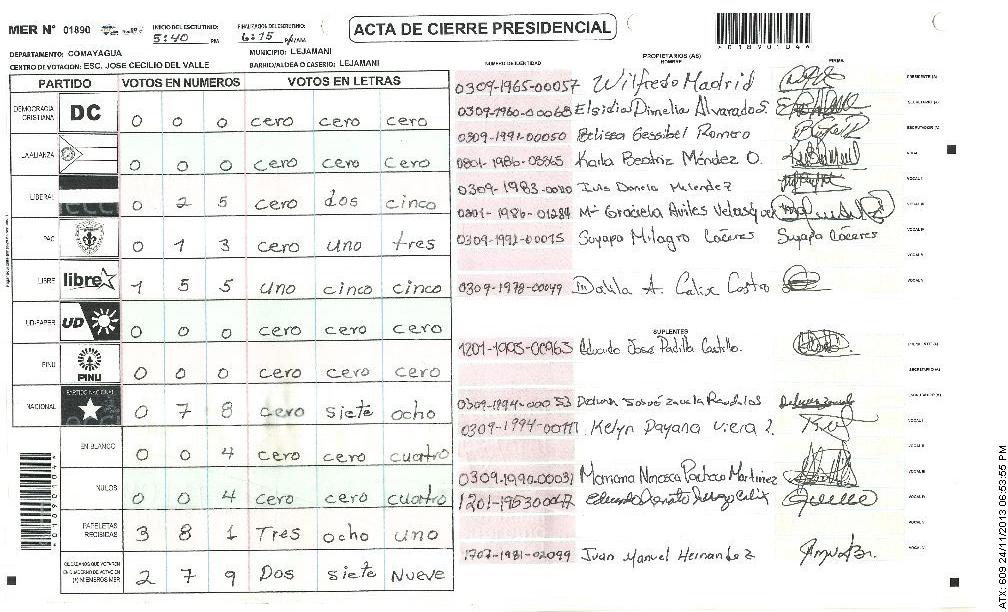 MER Nº 01890
INICIO DEL ESCRUTINIO: 5:40 PM
FINALIZACION DEL ESCRUTINIO: 6:15 P/AM
ACTA DE CIERRE PRESIDENCIAL
DEPARTAMENTO: COMAYAGUA
MUNICIPIO: LEJAMANI
CENTRO DE VOTACION: ESC. JOSE CECILIO DEL VALLE
BARRIO/ALDEA O CASERIO: LEJAMANI
PARTIDO VOTOS EN NUMEROS VOTOS EN LETRAS
DEMOCRACIA CRISTIANA DC 0 0 0 cero cero cero
LA ALIANZA 0 0 0 cero cero cero
LIBERAL 0 2 5 cero dos cinco
PAC 0 1 3 cero uno tres
LIBRE libre 1 5 5 uno cinco cinco
UD-FAPER UD 0 0 0 cero cero cero
PINU PINU 0 0 0 cero cero cero
NACIONAL PARTIDO NACIONAL 0 7 8 cero siete ocho
EN BLANCO 0 0 4 cero cero cuatro
NULOS 0 0 4 cero cero cuatro
PAPELETAS RECIBIDAS 3 8 1 Tres ocho uno
CIUDADANOS QUE VOTARON EN CUADERNO DE VOTACION (+) MIEMBROS MER 2 7 9 Dos siete Nueve
NUMERO DE IDENTIDAD PROPIETARIOS (AS) NOMBRE FIRMA
0309-1965-00057 Wilfredo Madrid PRESIDENTE (A)
0309-1960-00068 Elsidia Dimelia Alvarado S. SECRETARIO (A)
0309-1991-00050 Belissa Gessibel Romero ESCRUTADOR (A)
0801-1986-08865 Karla Beatriz Méndez O. VOCAL I
Luis Melendez
0801-1986-01284 Mª Graciela Aviles Velasquez
0309-1992-00015 Suyapa Milagro Cáceres Suyapa Cáceres
0309-1978-00049 Dalila A. Calix Castro
SUPLENTES
1201-1993-00963 Eduardo José Padilla Castillo.
0309-1994-00053
Kelyn Dayana Viera
0309-1990-00031 Mariana Martinez
Eduardo
1707-1981-02099 Juan Manuel Hernandez
ATX: 609 24/11/2013 06:53:55 PM